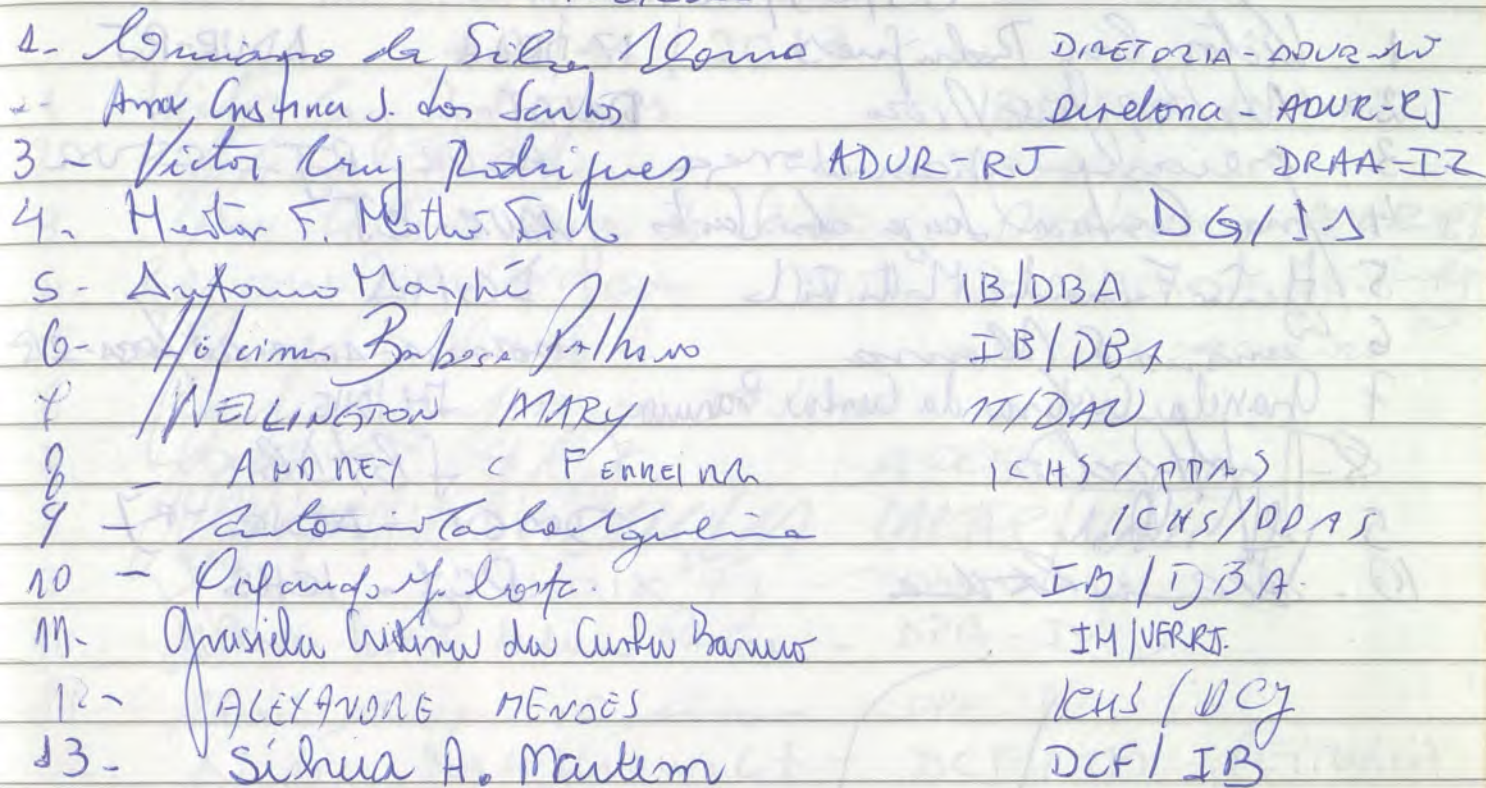 1- Luciano da Silva Alonso DIRETORIA - ADUR-RJ
Ana Cristina S. dos Santos Diretoria - ADUR-RJ
3 - Victor Cruz Rodrigues ADUR-RJ DRAA-IZ
4. Heitor F. Mothé Filho DG/IA
5- Antonio Mayhé IB/DBA
6- Barbosa IB/DBA
7 WELLINGTON MARY IT/DAU
8 - ANDREY C FERREIRA ICHS/DDAS
9 - Antonio Carlos Nogueira ICHS/DDAS
10 - Costa. IB/DBA.
11- Grasiela Cristina da Cunha Baruco IM/UFRRJ.
12- ALEXANDRE MENDES ICHS/DCJ
13- Silvia A. Martim DCF/IB